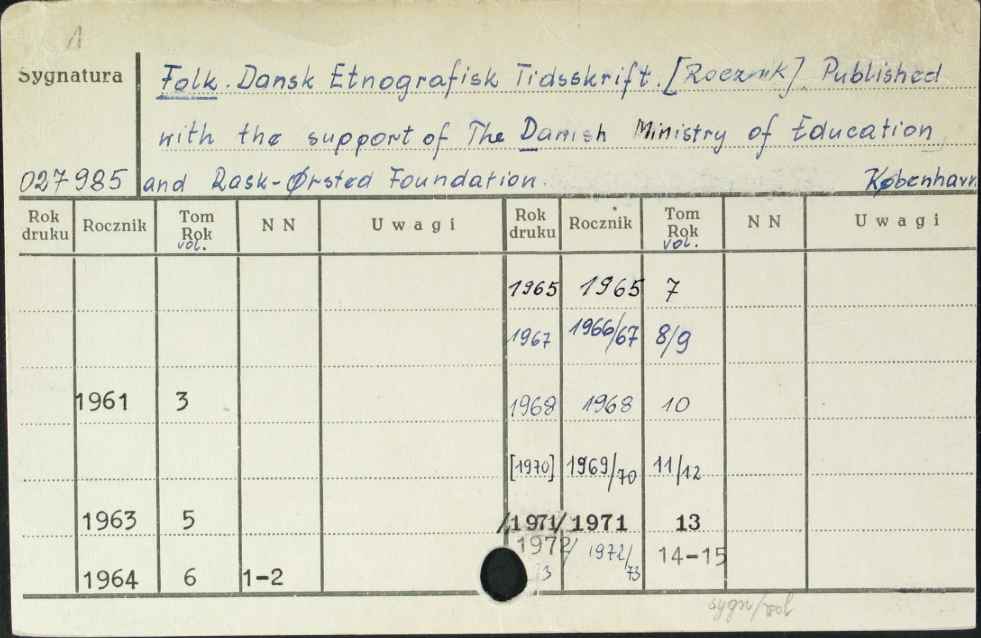 1
Sygnatura Folk. Dansk Etnografisk Tidsskrift. [Rocznik] Published
with the support of The Danish Ministry of Education
027985 and Rask-Ørsted Foundation. København
Rok druku Rocznik Tom Rok vol. NN Uwagi Rok druku Rocznik Tom Rok vol. NN Uwagi
1965 1965 7
1967 1966/67 8/9
1961 3 1968 1968 10
[1970] 1969/70 11/12
1963 5 /1971/ 1971 13
1972/ 1972/73 14-15
1964 6 1-2 3